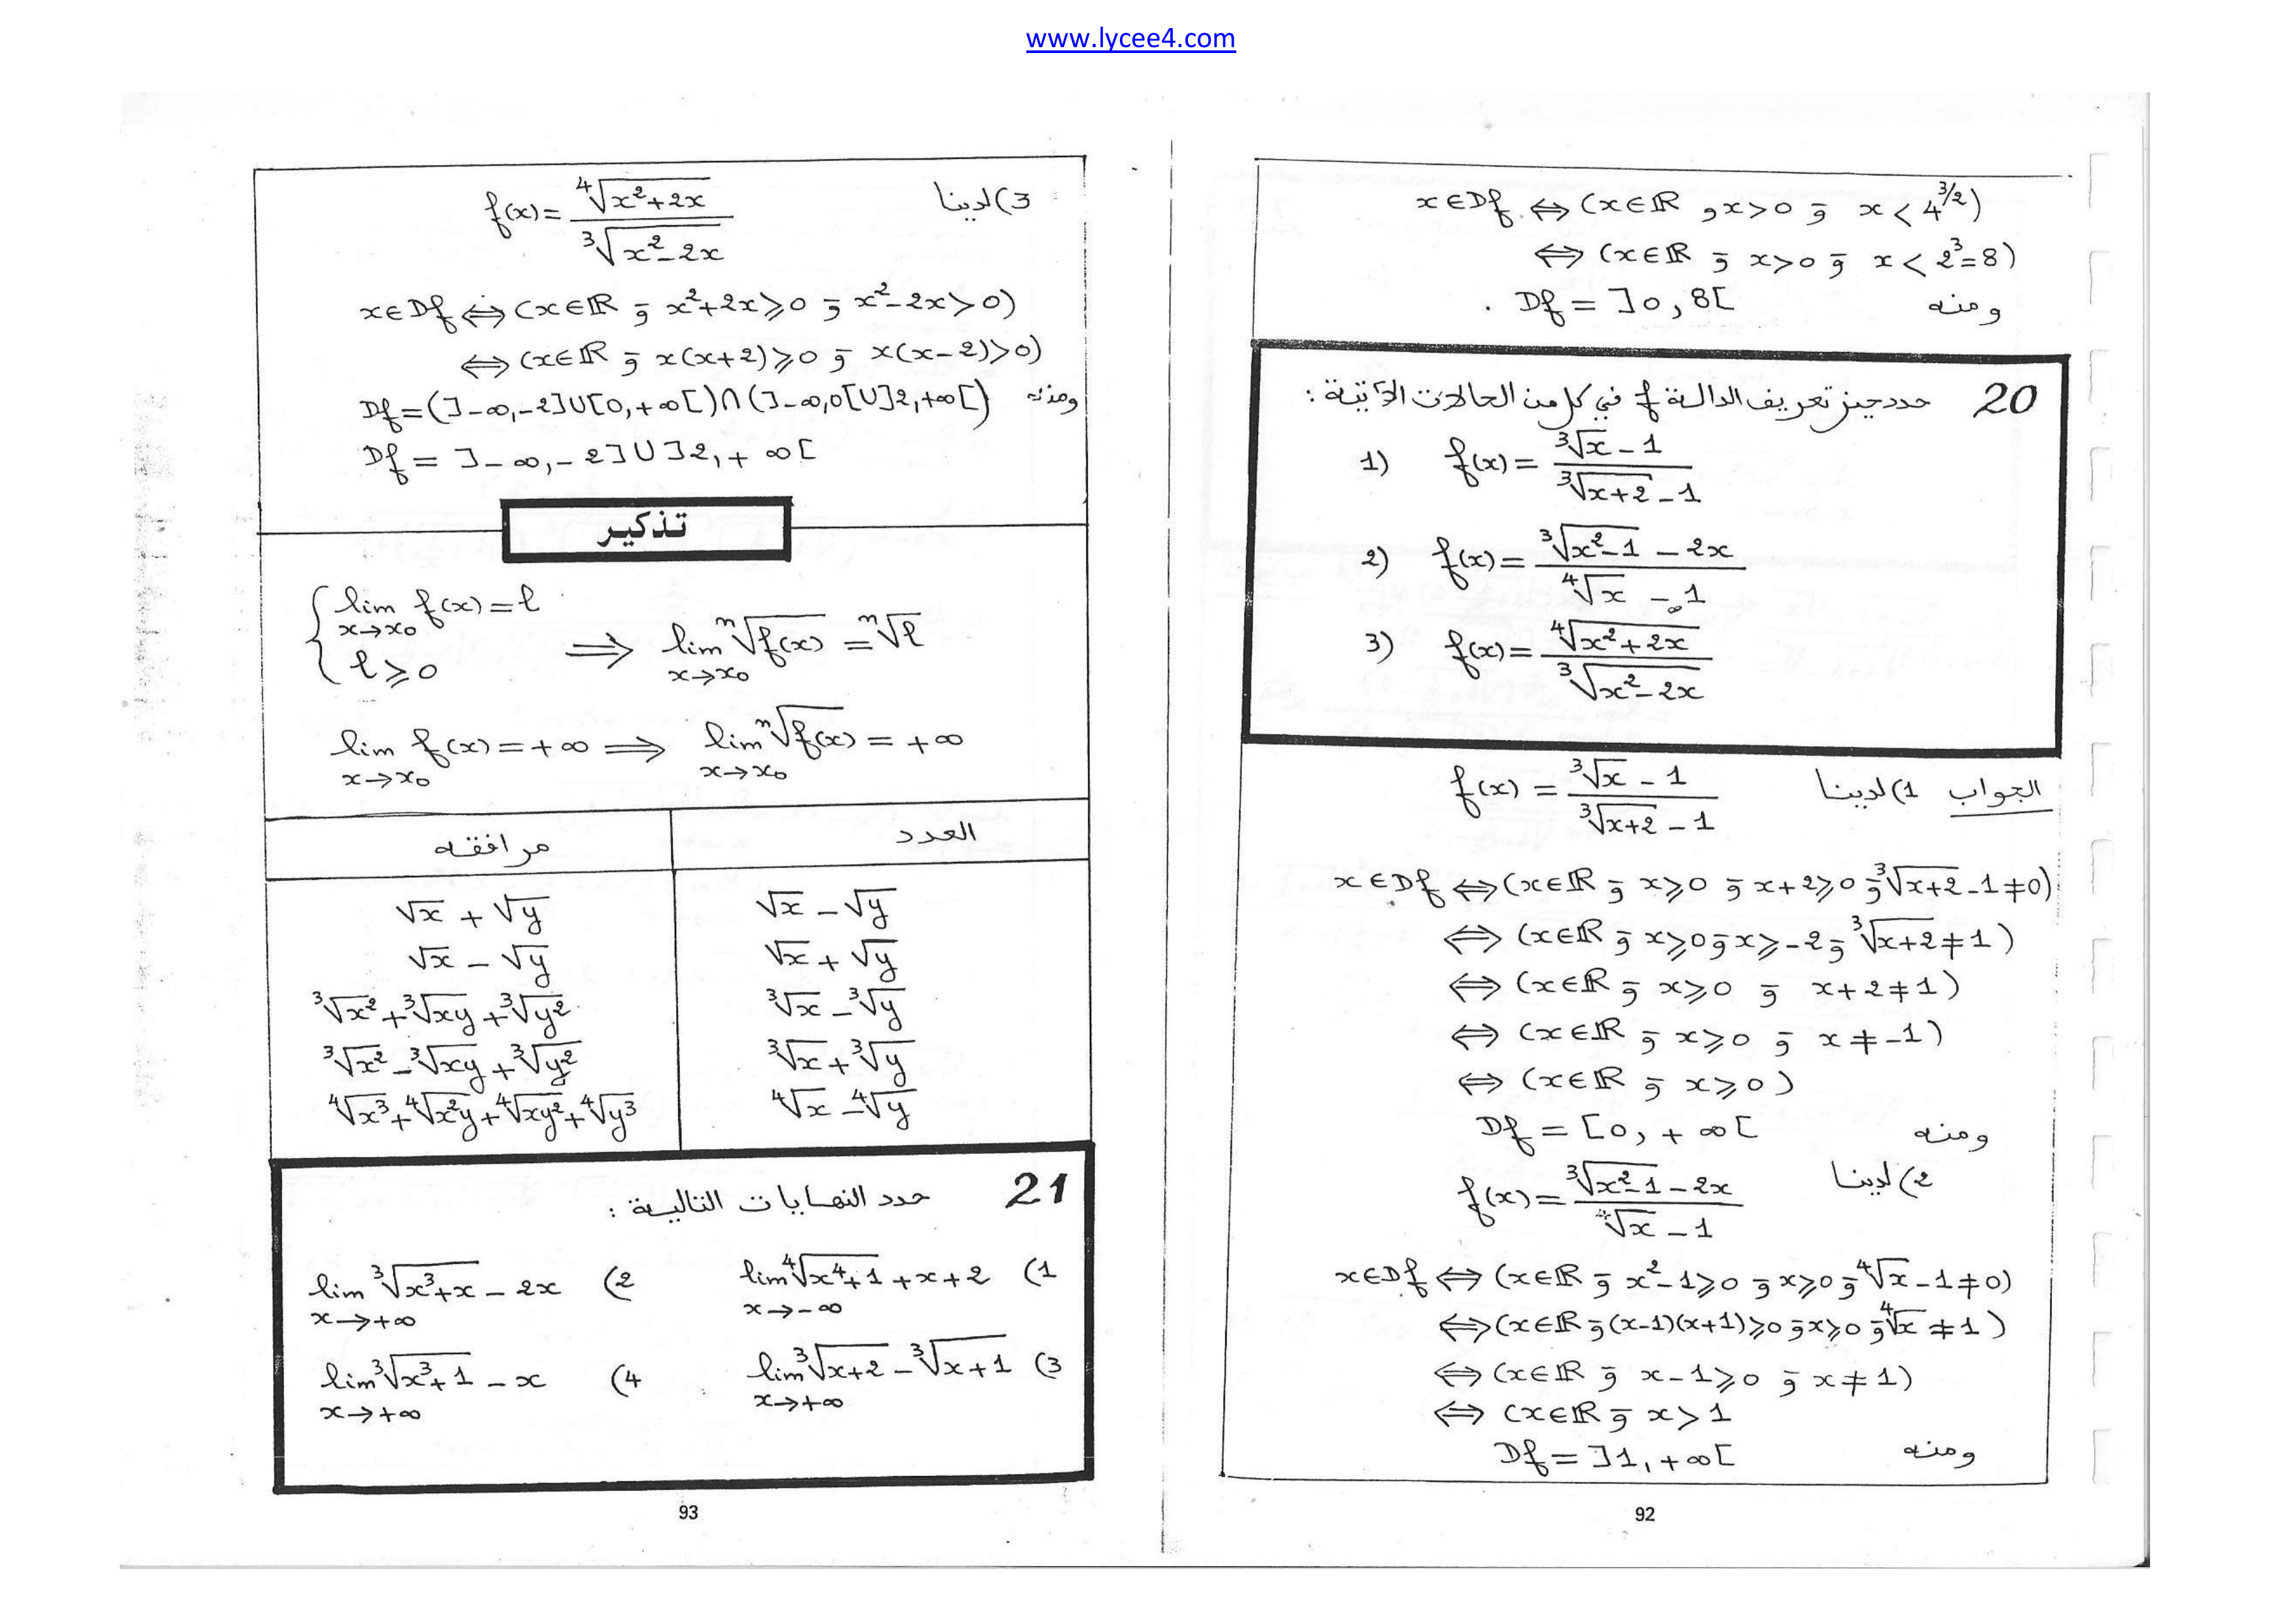 www.lycee4.com
x∈Df ⇔ (x∈ℝ و x>0 و x < 4^{3/2})
⇔ (x∈ℝ و x>0 و x < 2³=8)
ومنه Df = ]0,8[ .
20 حدد حيز تعريف الدالة f في كل من الحالات الآتية :
1) f(x) = (∛x - 1) / (∛(x+2) - 1)
2) f(x) = (∛(x²-1) - 2x) / (∜x - 1)
3) f(x) = ∜(x²+2x) / ∛(x²-2x)
الجواب 1) لدينا f(x) = (∛x - 1) / (∛(x+2) - 1)
x∈Df ⇔ (x∈ℝ و x⩾0 و x+2⩾0 و ∛(x+2) -1≠0)
⇔ (x∈ℝ و x⩾0 و x⩾-2 و ∛(x+2) ≠ 1)
⇔ (x∈ℝ و x⩾0 و x+2≠1)
⇔ (x∈ℝ و x⩾0 و x≠-1)
⇔ (x∈ℝ و x⩾0)
ومنه Df = [0,+∞[
2) لدينا f(x) = (∛(x²-1) - 2x) / (∜x - 1)
x∈Df ⇔ (x∈ℝ و x²-1⩾0 و x⩾0 و ∜x -1≠0)
⇔ (x∈ℝ و (x-1)(x+1)⩾0 و x⩾0 و ∜x ≠ 1)
⇔ (x∈ℝ و x-1⩾0 و x≠1)
⇔ (x∈ℝ و x>1
ومنه Df = ]1,+∞[
92
3) لدينا f(x) = ∜(x²+2x) / ∛(x²-2x)
x∈Df ⇔ (x∈ℝ و x²+2x⩾0 و x²-2x>0)
⇔ (x∈ℝ و x(x+2)⩾0 و x(x-2)>0)
ومنه Df = (]-∞,-2]∪[0,+∞[)∩(]-∞,0[∪]2,+∞[)
Df = ]-∞,-2]∪]2,+∞[
تذكير
{ lim_{x→x₀} f(x) = ℓ ; ℓ⩾0 ⟹ lim_{x→x₀} ⁿ√f(x) = ⁿ√ℓ
lim_{x→x₀} f(x) = +∞ ⟹ lim_{x→x₀} ⁿ√f(x) = +∞
العدد مرافقه
√x - √y √x + √y
√x + √y √x - √y
∛x - ∛y ∛x² + ∛xy + ∛y²
∛x + ∛y ∛x² - ∛xy + ∛y²
∜x - ∜y ∜x³ + ∜x²y + ∜xy² + ∜y³
21 حدد النهايات التالية :
1) lim_{x→-∞} ∜(x⁴+1) + x + 2 2) lim_{x→+∞} ∛(x³+x) - 2x
3) lim_{x→+∞} ∛(x+2) - ∛(x+1) 4) lim_{x→+∞} ∛(x³+1) - x
93